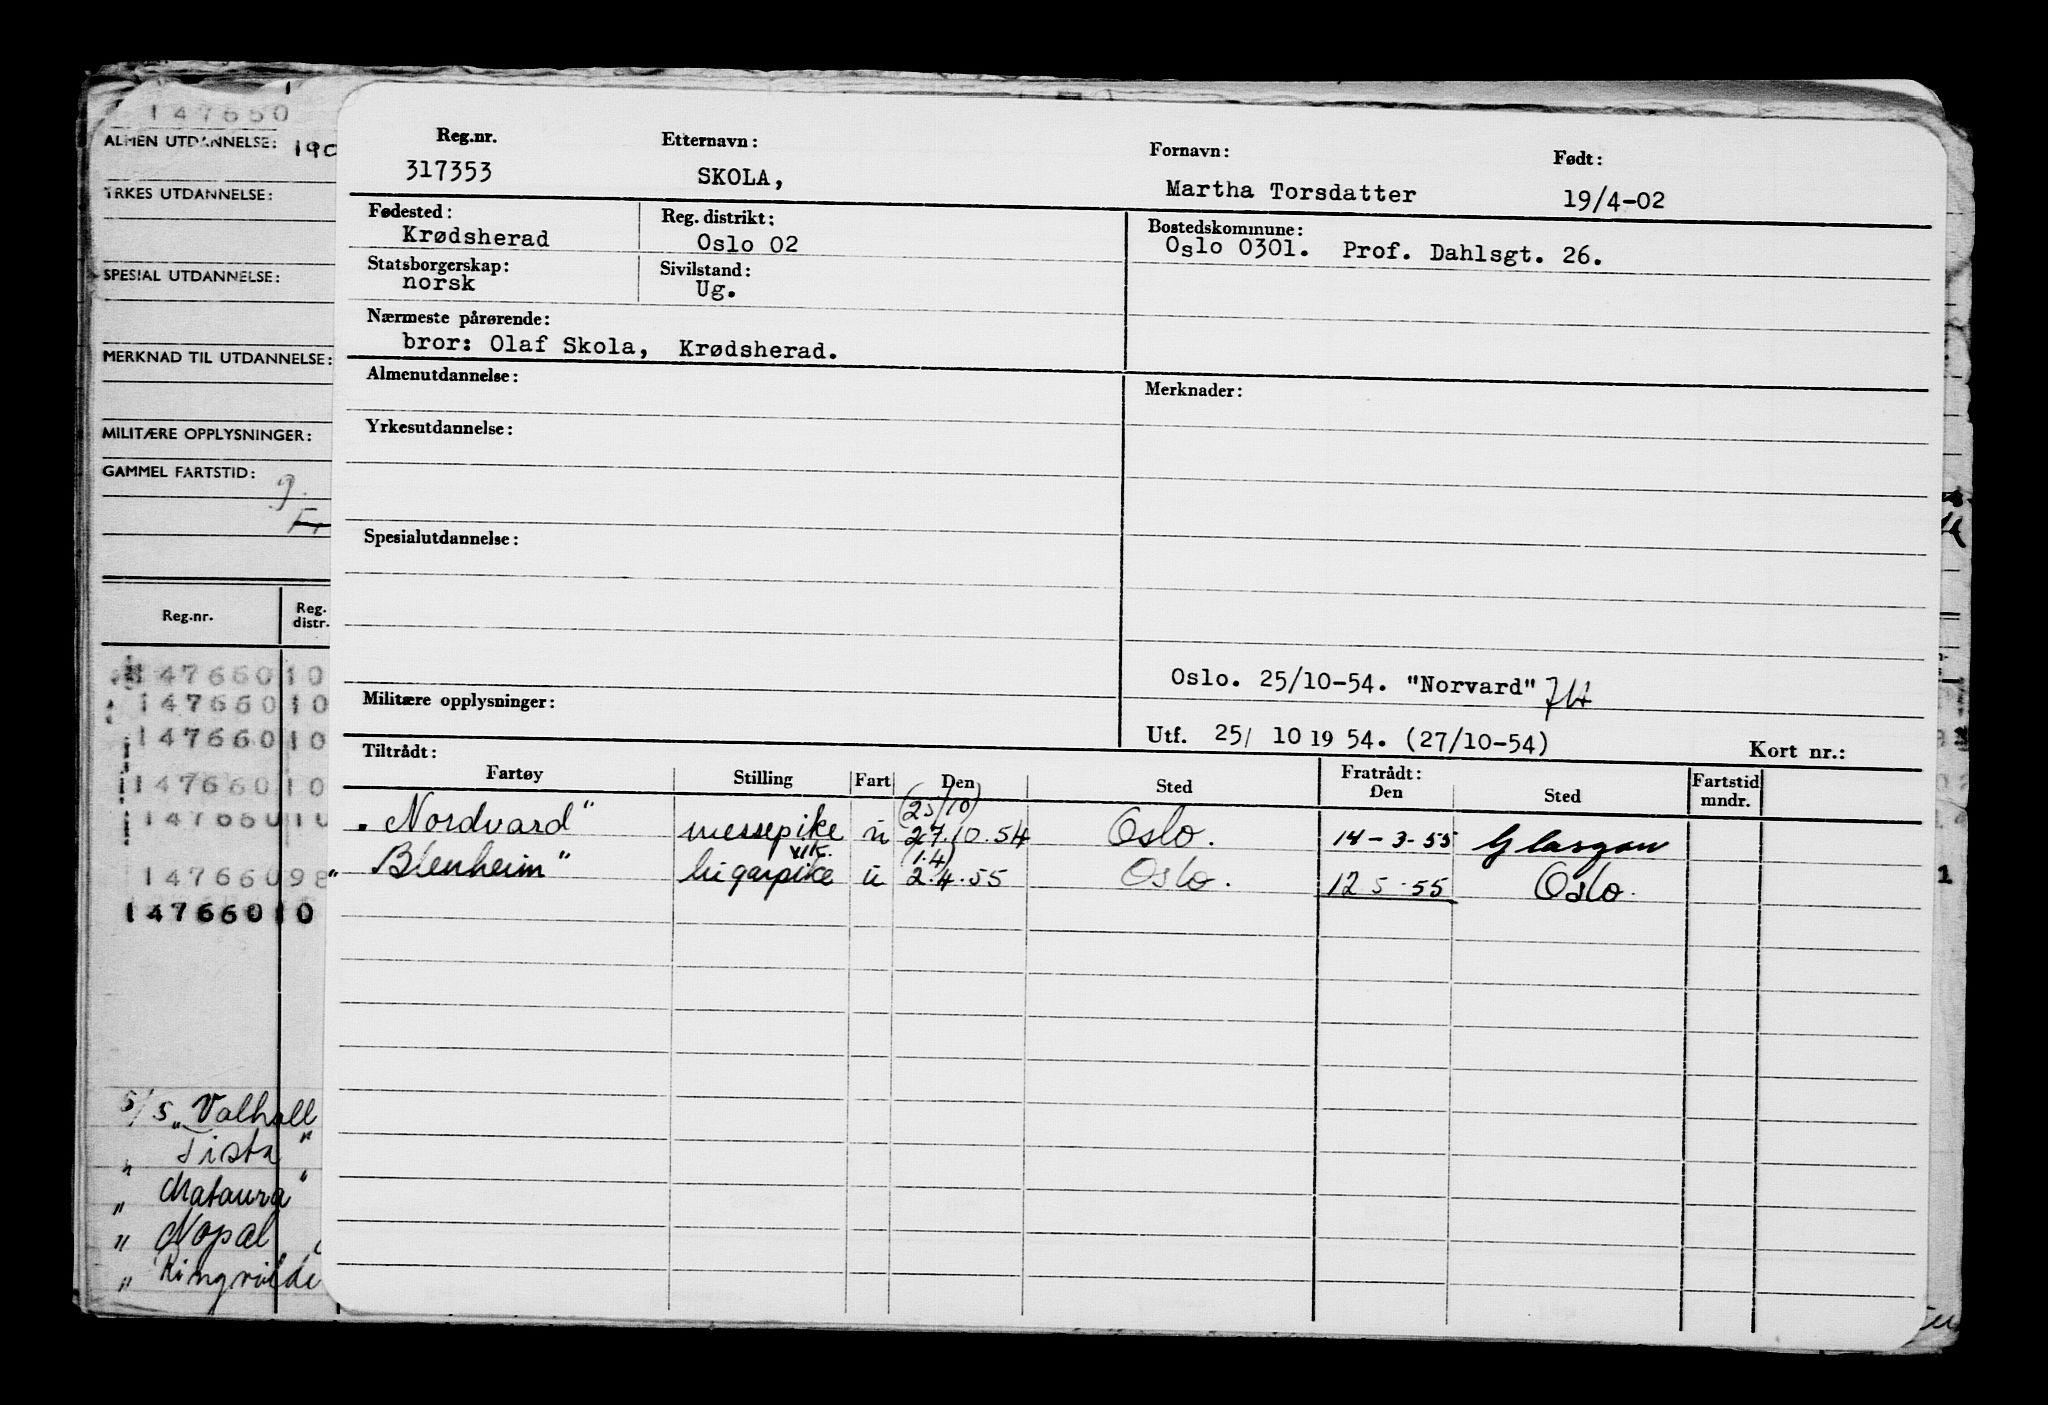 147660
ALMEN UTDANNELSE: 190
YRKES UTDANNELSE:
SPESIAL UTDANNELSE:
MERKNAD TIL UTDANNELSE:
MILITÆRE OPPLYSNINGER:
GAMMEL FARTSTID:
Reg.nr. Reg. distr.
147660 10
147660 10
147660 10
147660 10
147660 10
147660 98
147660 10
S/S „Valhall
" Tista"
" Mataura"
" Nopal
" Ringulv
Reg.nr. Etternavn: Fornavn: Født:
317353 SKOLA, Martha Torsdatter 19/4-02
Fødested: Reg. distrikt: Bostedskommune:
Krødsherad Oslo 02 Oslo 0301. Prof. Dahlsgt. 26.
Statsborgerskap: Sivilstand:
norsk Ug.
Nærmeste pårørende:
bror: Olaf Skola, Krødsherad.
Almenutdannelse: Merknader:
Yrkesutdannelse:
Spesialutdannelse:
Oslo. 25/10-54. "Norvard"
Militære opplysninger:
Utf. 25/ 10 19 54. (27/10-54) Kort nr.:
Tiltrådt: Fratrådt:
Fartøy Stilling Fart Den Sted Den Sted Fartstid mndr.
(25/10)
„Nordvard" messepike u 27.10.54 Oslo. 14-3-55 Glasgow
vik. (1.4)
„Blenheim" lugarpike u 2.4.55 Oslo. 12 5-55 Oslo.
1